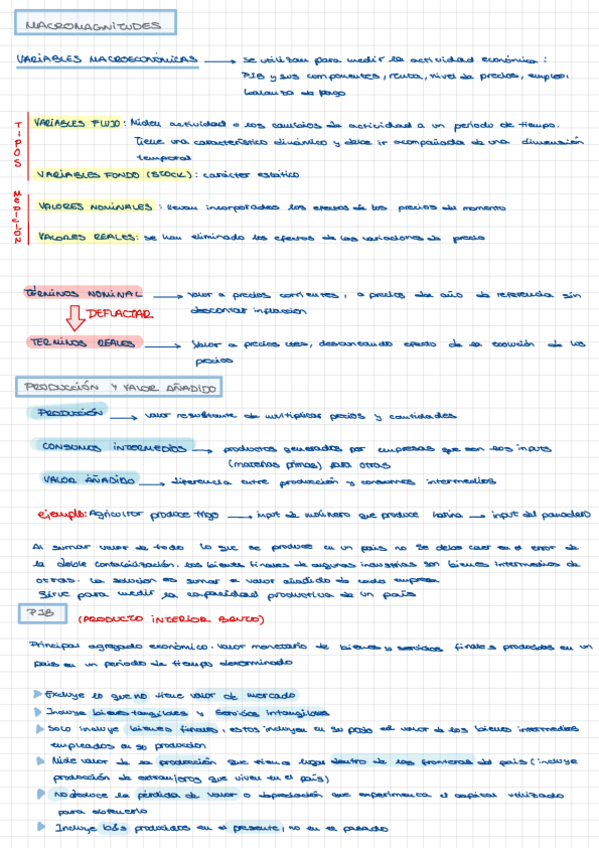 MACROMAGNITUDES
VARIABLES MACROECONÓMICAS → se utilizan para medir la actividad económica:
PIB y sus componentes, renta, nivel de precios, empleo,
balanza de pago
TIPOS
VARIABLES FLUJO: Miden actividad o los cambios de actividad a un periodo de tiempo.
Tiene una característica dinámica y debe ir acompañada de una dimensión
temporal
VARIABLES FONDO (STOCK): carácter estático
MEDICIÓN
VALORES NOMINALES: llevan incorporados los efectos de los precios del momento
VALORES REALES: se han eliminado los efectos de las variaciones de precio
TÉRMINOS NOMINAL → valor a precios corrientes, a precios del año de referencia sin
descontar inflación
DEFLACTAR
TERMINOS REALES → Valor a precios, descontando efecto de la evolución de los
precios
PRODUCCIÓN Y VALOR AÑADIDO
PRODUCCIÓN → valor resultante de multiplicar precios y cantidades
CONSUMOS INTERMEDIOS → productos generados por empresas que son los inputs
(materias primas) para otras
VALOR AÑADIDO → diferencia entre producción y consumos intermedios
ejemplo: Agricultor produce trigo → input de molinero que produce harina → input del panadero
Al sumar valor de todo lo que se produce en un país no se debe caer en el error de
la doble contabilización. Los bienes finales de algunas industrias son bienes intermedios de
otras. La solución es sumar el valor añadido de cada empresa
Sirve para medir la capacidad productiva de un país
PIB (PRODUCTO INTERIOR BRUTO)
Principal agregado económico. Valor monetario de bienes y servicios finales producidos en un
país en un periodo de tiempo determinado
Excluye lo que no tiene valor de mercado
Incluye bienes tangibles y servicios intangibles
Solo incluye bienes finales, estos incluyen en su precio el valor de los bienes intermedios
empleados en su producción
Mide valor de la producción que tiene lugar dentro de las fronteras del país (incluye
producción de extranjeros que viven en el país)
No deduce la pérdida de valor o depreciación que experimenta el capital utilizado
para obtenerlo
Incluye producidos en el presente, no en el pasado